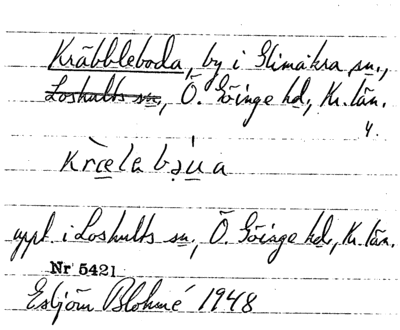 Kräbbleboda, by i Glimåkra sn.,
Loshults sn., Ö. Göinge hd, Kr. län.
4.
uppt. i Loshults sn., Ö. Göinge hd, Kr. län.
Nr 5421
Esbjörn Blohmé 1948